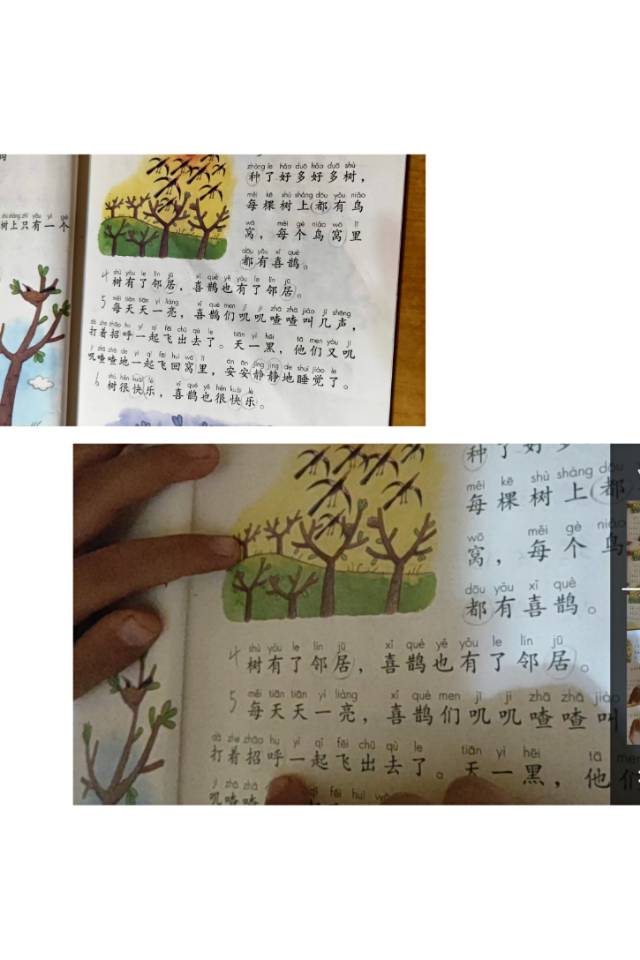 shù shàng zhǐ yǒu yí gè
树上只有一个
zhòng le hǎo duō hǎo duō shù
种了好多好多树，
měi kē shù shàng dōu yǒu niǎo
每棵树上都有鸟
wō měi gè niǎo wō lǐ
窝，每个鸟窝里
dōu yǒu xǐ què
都有喜鹊。
shù yǒu le lín jū xǐ què yě yǒu le lín jū
4 树有了邻居，喜鹊也有了邻居。
měi tiān tiān yí liàng xǐ què men jī jī zhā zhā jiào jǐ shēng
5 每天天一亮，喜鹊们叽叽喳喳叫几声，
dǎ zhe zhāo hu yì qǐ fēi chū qù le tiān yì hēi tā men yòu jī
打着招呼一起飞出去了。天一黑，他们又叽
jī zhā zhā de yì qǐ fēi huí wō lǐ ān ān jìng jìng de shuì jiào le
叽喳喳地一起飞回窝里，安安静静地睡觉了。
shù hěn kuài lè xǐ què yě hěn kuài lè
6 树很快乐，喜鹊也很快乐。
种了好多
měi kē shù shàng dōu
每棵树上都
wō měi gè niǎo
窝，每个鸟
dōu yǒu xǐ què
都有喜鹊。
shù yǒu le lín jū xǐ què yě yǒu le lín jū
4 树有了邻居，喜鹊也有了邻居。
měi tiān tiān yí liàng xǐ què men jī jī zhā zhā jiào
5 每天天一亮，喜鹊们叽叽喳喳叫
dǎ zhe zhāo hu yì qǐ fēi chū qù le tiān yì hēi tā men
打着招呼一起飞出去了。天一黑，他们
jī zhā zhā qǐ fēi huí wō
叽喳喳